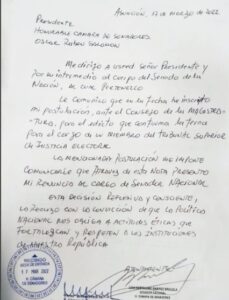 Asunción, 17 de marzo de 2022
Presidente
Honorable Cámara de Senadores
Oscar Rubén Salomón
Me dirijo a usted Señor Presidente y
por su intermedio al cuerpo del Senado de la
Nación, al que pertenezco
Le comunico que en fecha he inscripto
mi postulación, ante el Consejo de la Magistra-
tura, para el efecto que conforma la terna
para el cargo de un Miembro del Tribunal Superior
de Justicia Electoral.
La mencionada postulación me impone
comunicarle que através de esta nota presento
mi renuncia al cargo de Senador Nacional
Esta decisión reflexiva y consciente,
la realizo con la convicción de que la política
nacional nos obliga a actitudes éticas que
fortalezcan y respeten a las instituciones
de nuestra República
Atentamente
RECIBIDO
MESA DE ENTRADA
17 MAR 2022
H. CÁMARA
DE SENADORES